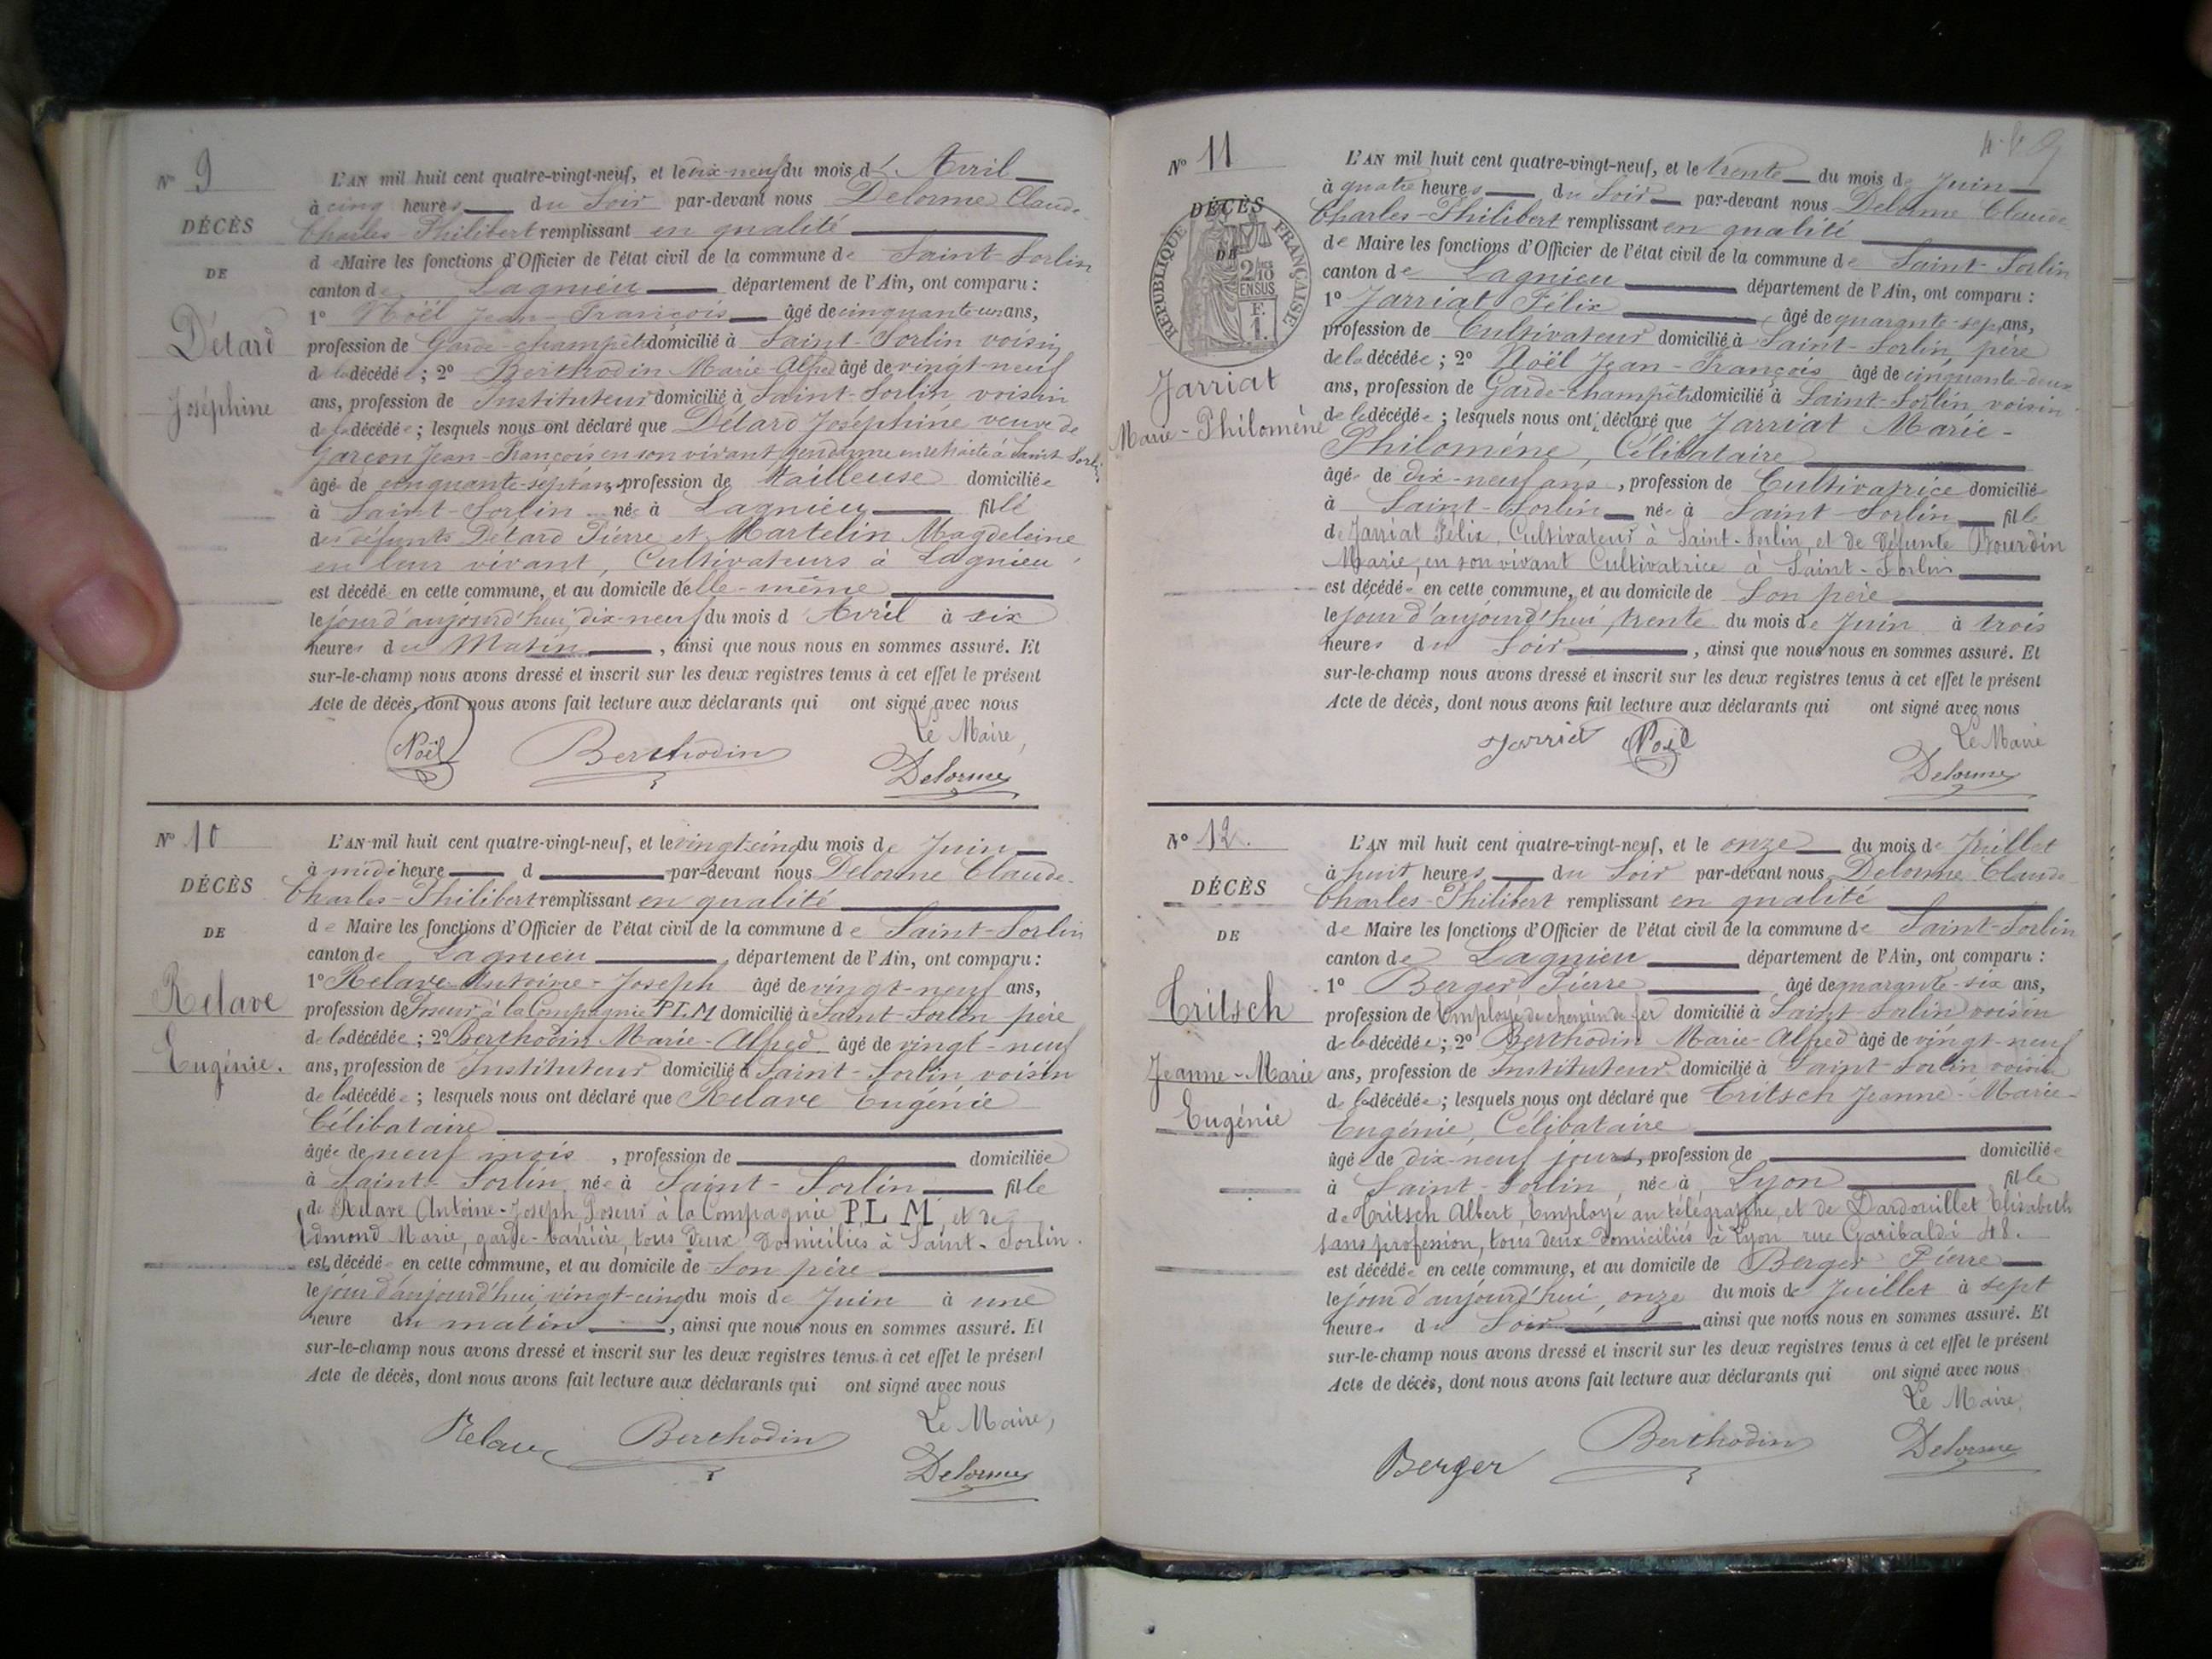 N° 9
DÉCÈS
DE
Détard
Joséphine
L'AN mil huit cent quatre-vingt-neuf, et le dix-neuf du mois d' Avril
à cinq heures du Soir par-devant nous Delorme Claude-
Charles-Philibert remplissant en qualité
de Maire les fonctions d'Officier de l'état civil de la commune de Saint-Sorlin
canton de Lagnieu département de l'Ain, ont comparu :
1° Noël Jean-François âgé de cinquante un ans,
profession de Garde-champêtre domicilié à Saint-Sorlin voisin
de la décédée ; 2° Berthodin Marie-Alfred âgé de vingt-neuf
ans, profession de Instituteur domicilié à Saint-Sorlin voisin
de la décédée ; lesquels nous ont déclaré que Détard Joséphine veuve de
Garçon Jean-François en son vivant gendarme en retraite à Saint-Sorlin
âgée de cinquante-sept ans, profession de Tailleuse domiciliée
à Saint-Sorlin née à Lagnieu fille
des défunts Détard Pierre et Martelin Magdeleine
en leur vivant, Cultivateurs à Lagnieu
est décédé en cette commune, et au domicile d'elle-même
le jour d'aujourd'hui dix-neuf du mois d' Avril à six
heures du Matin, ainsi que nous nous en sommes assuré. Et
sur-le-champ nous avons dressé et inscrit sur les deux registres tenus à cet effet le présent
Acte de décès, dont nous avons fait lecture aux déclarants qui ont signé avec nous
Le Maire,
Noël Berthodin Delorme
N° 10
DÉCÈS
DE
Relave
Eugénie.
L'AN mil huit cent quatre-vingt-neuf, et le vingt-cinq du mois de Juin
à midi heure d par-devant nous Delorme Claude-
Charles-Philibert remplissant en qualité
de Maire les fonctions d'Officier de l'état civil de la commune de Saint-Sorlin
canton de Lagnieu, département de l'Ain, ont comparu :
1° Relave Antoine-Joseph âgé de vingt-neuf ans,
profession de Poseur à la Compagnie PLM domicilié à Saint-Sorlin père
de la décédée ; 2° Berthodin Marie-Alfred âgé de vingt-neuf
ans, profession de Instituteur domicilié à Saint-Sorlin voisin
de la décédée ; lesquels nous ont déclaré que Relave Eugénie
Célibataire
âgée de neuf mois, profession de domiciliée
à Saint-Sorlin née à Saint-Sorlin fille
de Relave Antoine-Joseph Poseur à la Compagnie PLM, et de
Edmond Marie, garde-barrière, tous deux domiciliés à Saint-Sorlin.
est décédé en cette commune, et au domicile de Son père
le jour d'aujourd'hui, vingt-cinq du mois de Juin à une
heure du matin, ainsi que nous nous en sommes assuré. Et
sur-le-champ nous avons dressé et inscrit sur les deux registres tenus à cet effet le présent
Acte de décès, dont nous avons fait lecture aux déclarants qui ont signé avec nous
Le Maire,
Relave Berthodin Delorme
N° 11
DÉCÈS
DE
RÉPUBLIQUE FRANÇAISE
2/10
EN SUS
F.
1.
Jarriat
Marie-Philomène
L'AN mil huit cent quatre-vingt-neuf, et le trente du mois de Juin
à quatre heures du Soir par-devant nous Delorme Claude
Charles-Philibert remplissant en qualité
de Maire les fonctions d'Officier de l'état civil de la commune de Saint-Sorlin
canton de Lagnieu département de l'Ain, ont comparu :
1° Jarriat Félix âgé de quarante-sept ans,
profession de Cultivateur domicilié à Saint-Sorlin père
de la décédée ; 2° Noël Jean-François âgé de cinquante-deux
ans, profession de Garde-champêtre domicilié à Saint-Sorlin voisin
de la décédée ; lesquels nous ont déclaré que Jarriat Marie-
Philomène, Célibataire
âgée de dix-neuf ans, profession de Cultivatrice domiciliée
à Saint-Sorlin née à Saint-Sorlin fille
de Jarriat Félix, Cultivateur à Saint-Sorlin, et de défunte Bourdin
Marie, en son vivant Cultivatrice à Saint-Sorlin
est décédée en cette commune, et au domicile de Son père
le jour d'aujourd'hui, trente du mois de Juin à trois
heures du Soir, ainsi que nous nous en sommes assuré. Et
sur-le-champ nous avons dressé et inscrit sur les deux registres tenus à cet effet le présent
Acte de décès, dont nous avons fait lecture aux déclarants qui ont signé avec nous
Le Maire
Jarriat Noël Delorme
N° 12.
DÉCÈS
DE
Tritsch
Jeanne-Marie
Eugénie
L'AN mil huit cent quatre-vingt-neuf, et le onze du mois de Juillet
à huit heures du Soir par-devant nous Delorme Claude-
Charles-Philibert remplissant en qualité
de Maire les fonctions d'Officier de l'état civil de la commune de Saint-Sorlin
canton de Lagnieu département de l'Ain, ont comparu :
1° Berger Pierre âgé de quarante-six ans,
profession de Employé de chemin de fer domicilié à Saint-Sorlin voisin
de la décédée ; 2° Berthodin Marie-Alfred âgé de vingt-neuf
ans, profession de Instituteur domicilié à Saint-Sorlin voisin
de la décédée ; lesquels nous ont déclaré que Tritsch Jeanne-Marie-
Eugénie, Célibataire
âgée de dix-neuf jours, profession de domiciliée
à Saint-Sorlin, née à Lyon fille
de Tritsch Albert, Employé au télégraphe, et de Dardouillet Elisabeth
sans profession, tous deux domiciliés à Lyon rue Garibaldi 48.
est décédée en cette commune, et au domicile de Berger Pierre
le jour d'aujourd'hui, onze du mois de Juillet à sept
heures du Soir ainsi que nous nous en sommes assuré. Et
sur-le-champ nous avons dressé et inscrit sur les deux registres tenus à cet effet le présent
Acte de décès, dont nous avons fait lecture aux déclarants qui ont signé avec nous
Le Maire,
Berger Berthodin Delorme